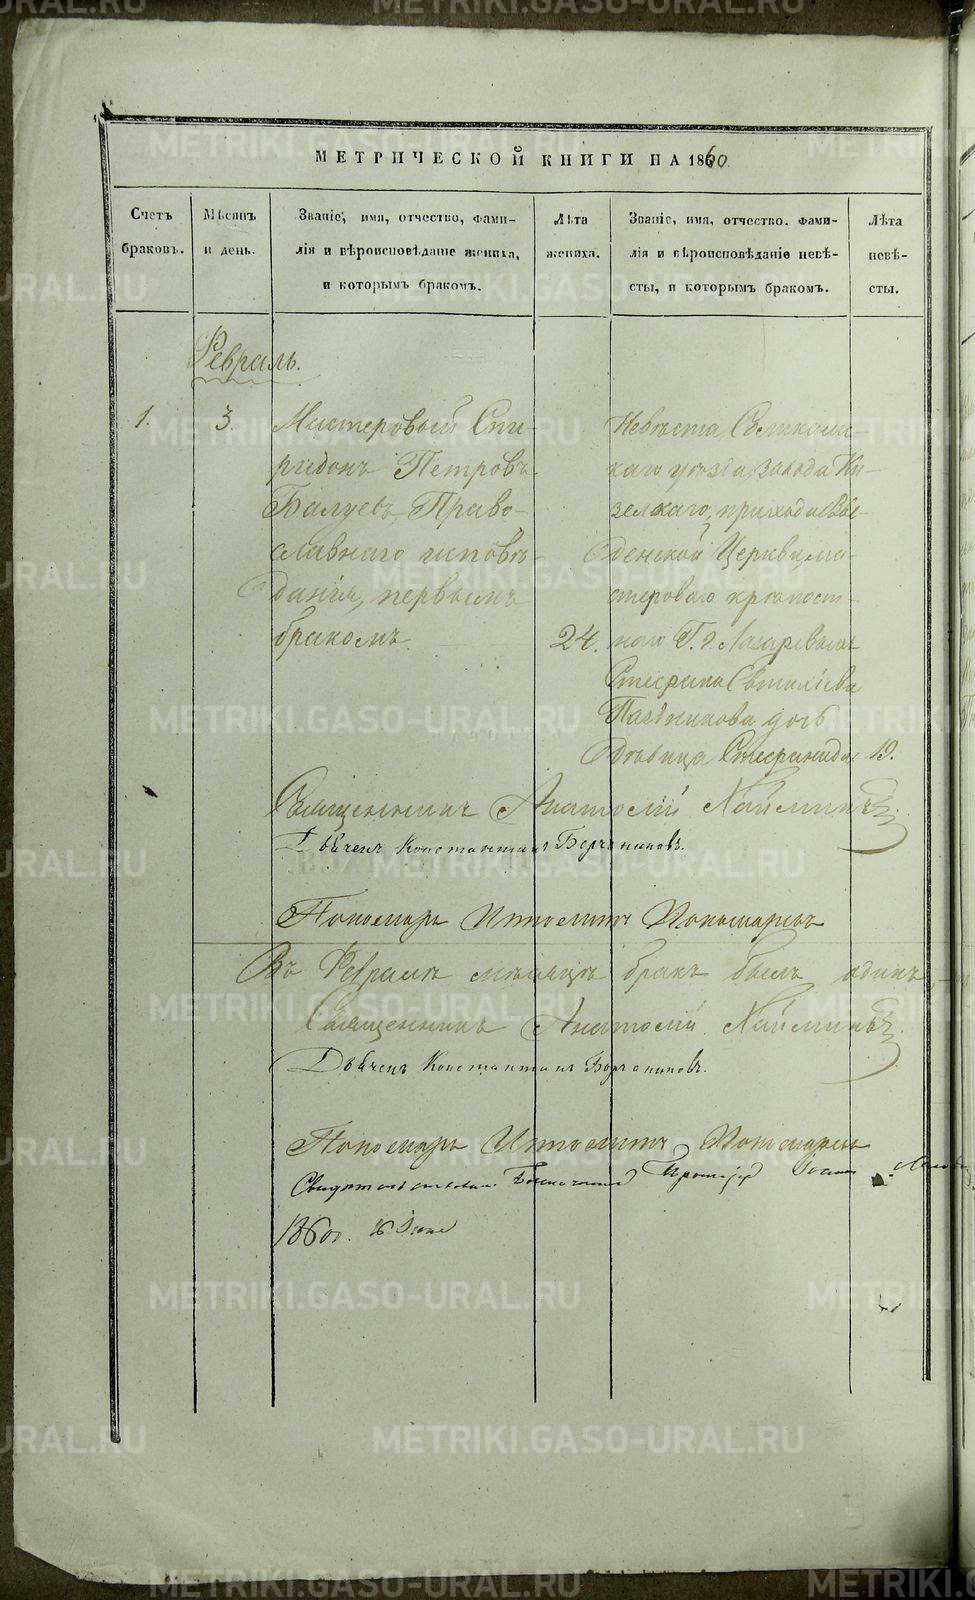 МЕТРИЧЕСКОЙ КНИГИ НА 1860
Счетъ браковъ.
Мѣсяцъ и день.
Званіе, имя, отчество, фами-
лія и вѣроисповѣданіе жениха,
и которымъ бракомъ.
Лѣта жениха.
Званіе, имя, отчество. фами-
лія и вѣроисповѣданіе невѣ-
сты, и которымъ бракомъ.
Лѣта невѣ-
сты.
Февраль.
1.
3.
Мастеровый Спи-
ридонъ Петровъ
Балуевъ, Право-
славнаго исповѣ-
данія, первымъ
бракомъ.
24.
Невѣста, Соликам-
скаго уѣзда, завода Ки-
зеловскаго, прихода Вве-
денской Церкви, ма-
стероваго крѣпост-
наго Г.г. Лазаревыхъ
дочь
дѣвица Стефанида
19.
Священникъ Анатолій
Дьячекъ Константинъ
Пономарь Ипполитъ Пономаревъ
Въ Февралѣ мѣсяцѣ бракъ былъ одинъ
Священникъ Анатолій
Дьячекъ Константинъ
Пономарь Ипполитъ Пономаревъ
Свидѣтельствовалъ Благочинный Протоіерей Іоаннъ
1860
METRIKI.GASO-URAL.RU